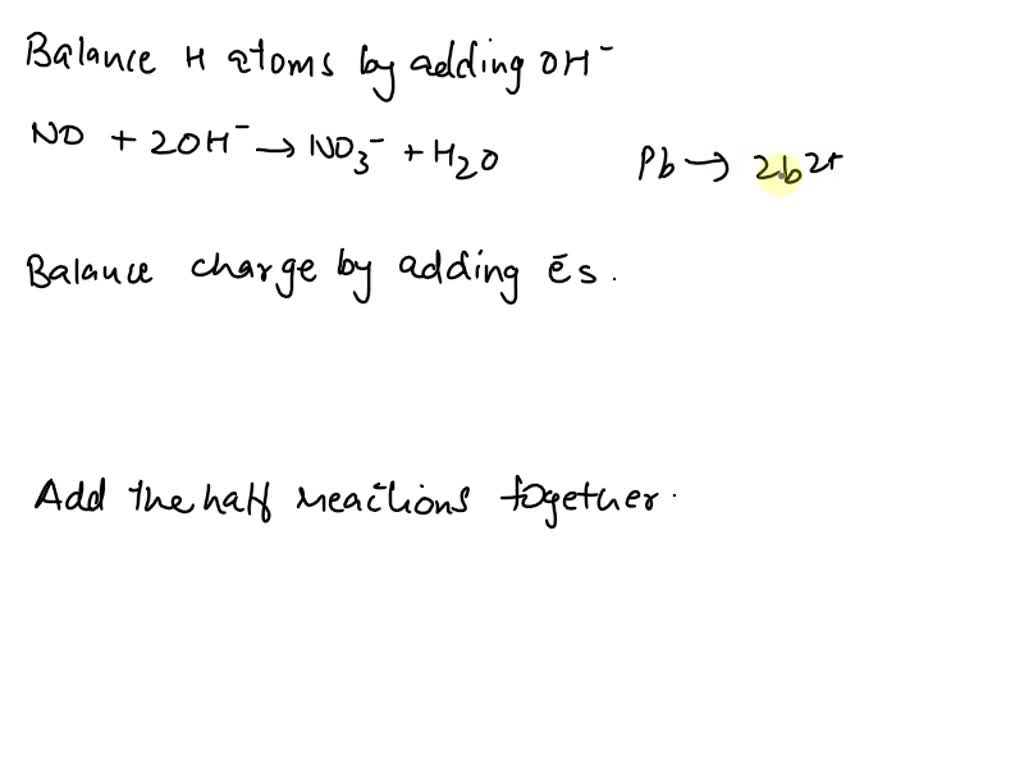 Balance H atoms by adding OH⁻
NO + 2OH⁻ → NO₃⁻ + H₂O
Pb → 2b²⁺
Balance charge by adding ēs.
Add the half reactions together.